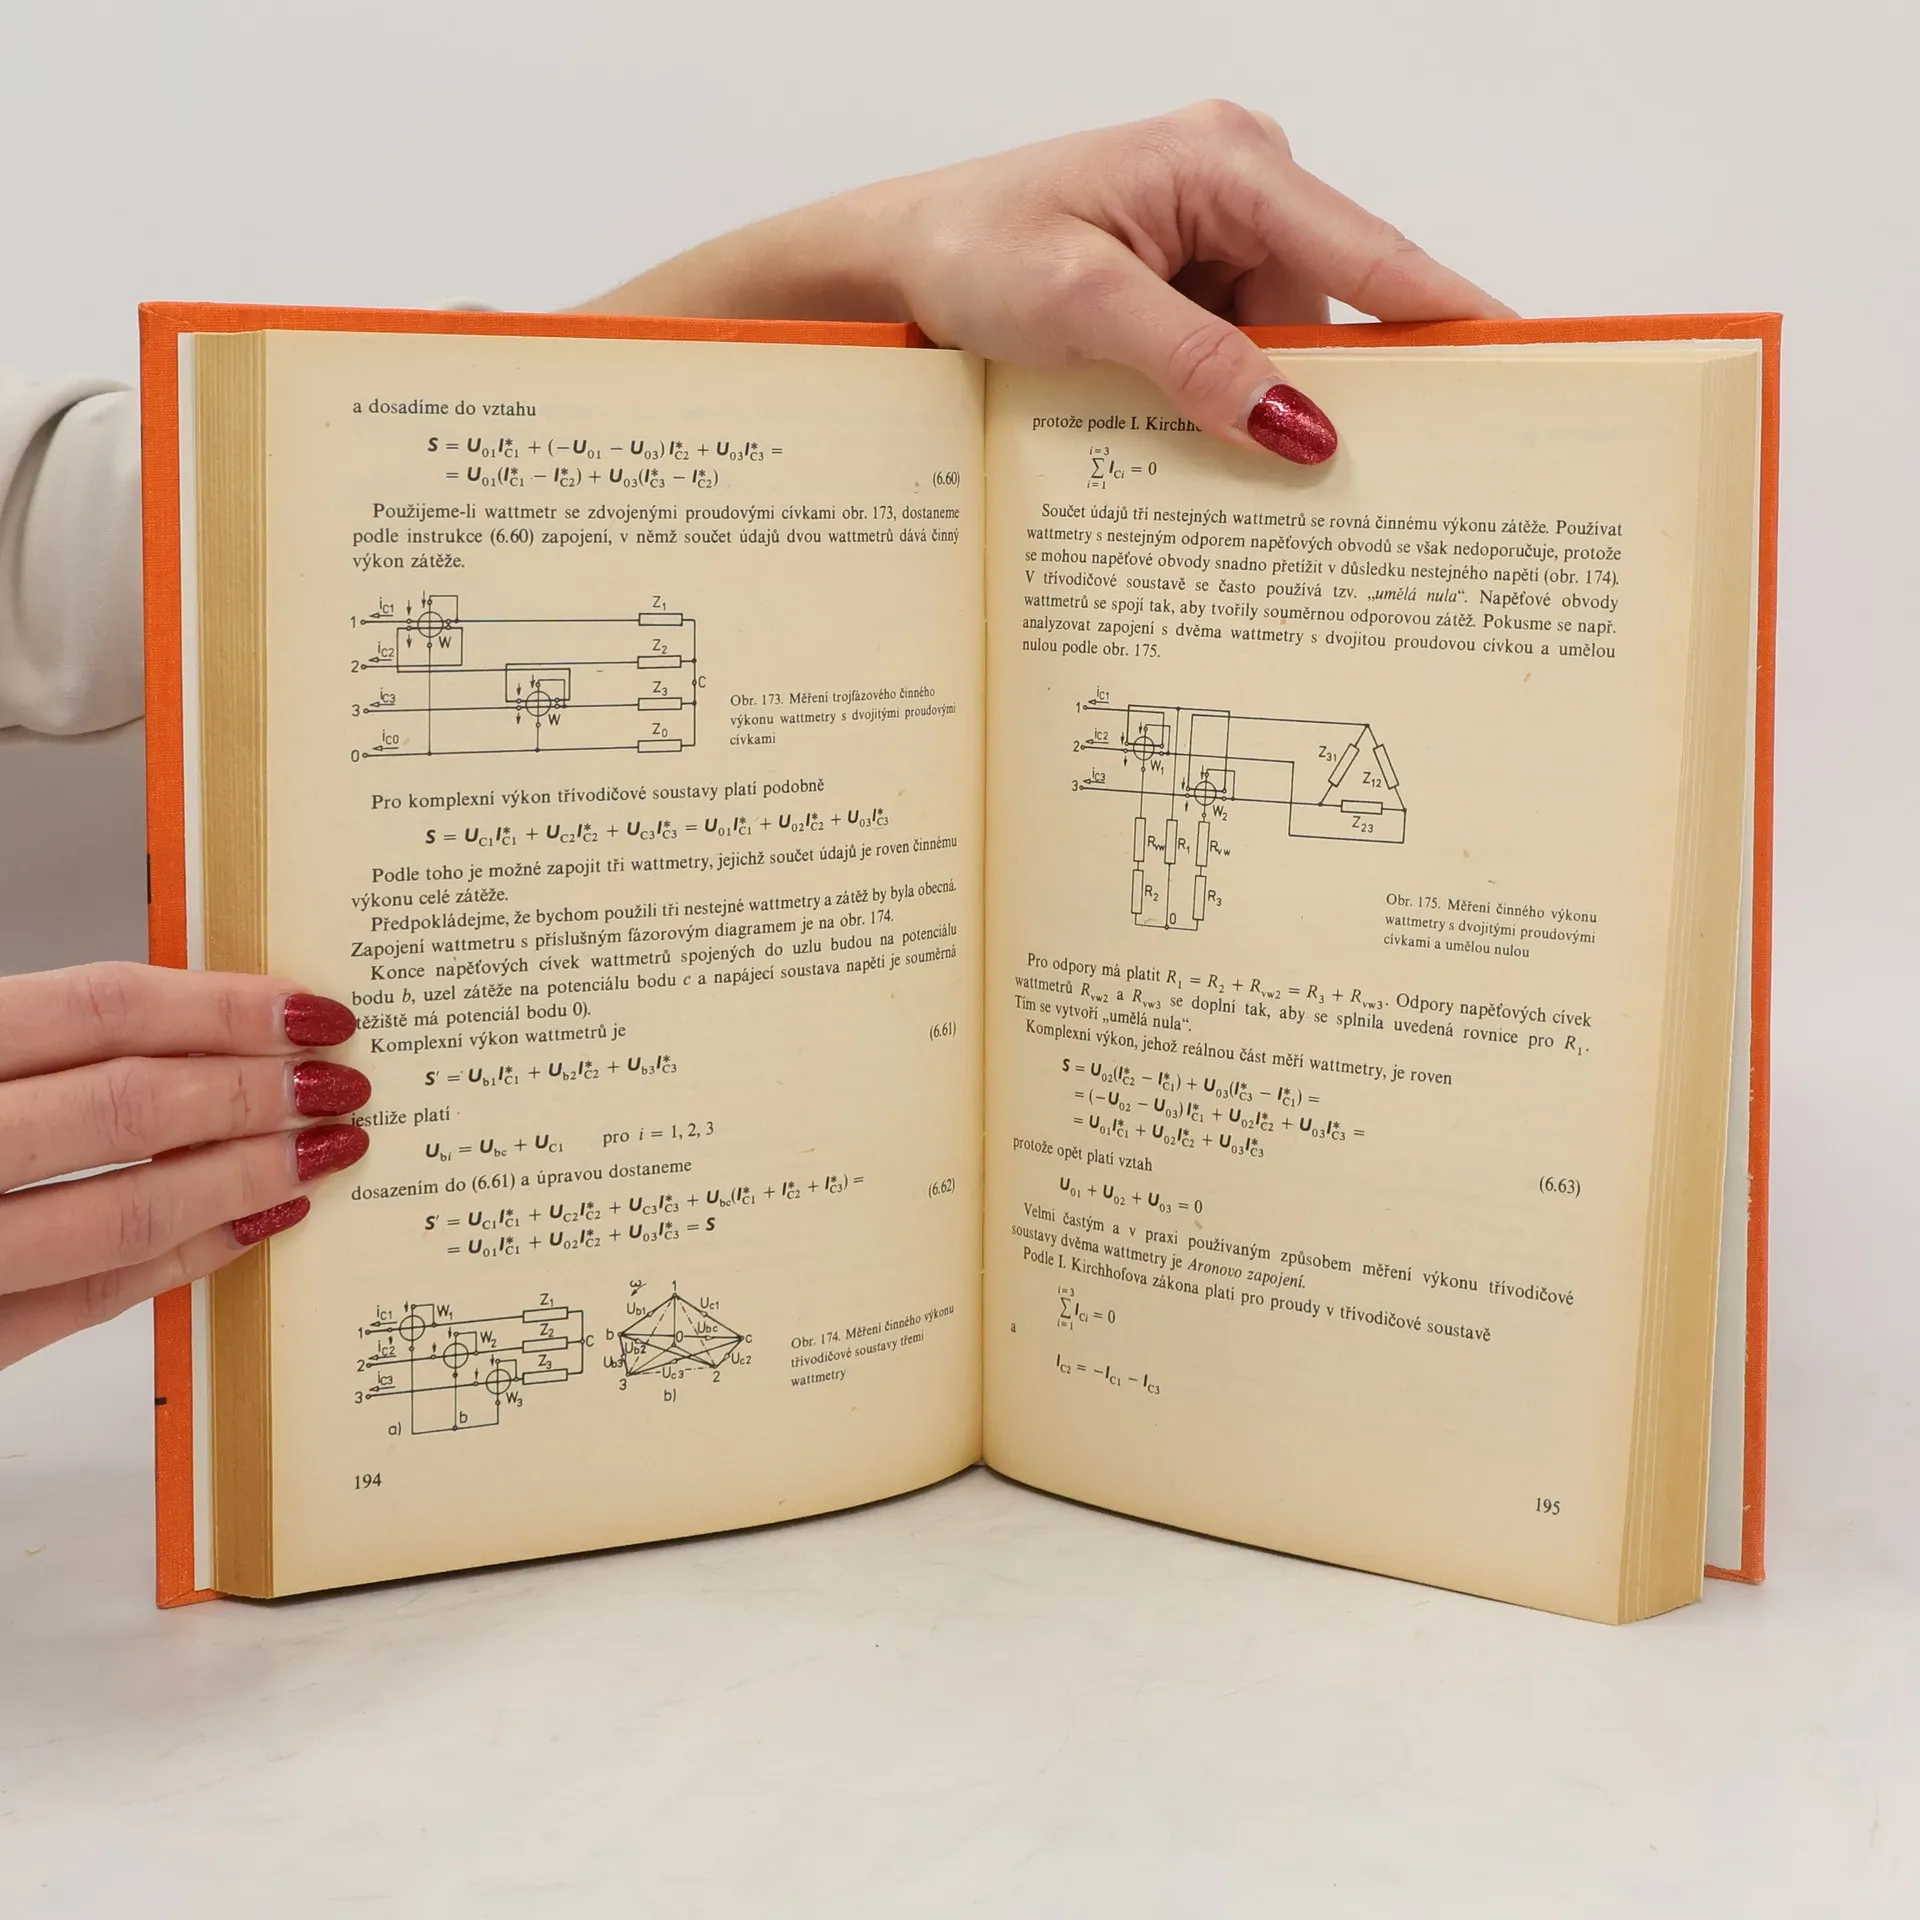 a dosadíme do vztahu
S = U₀₁I*C1 + (−U₀₁ − U₀₃) I*C2 + U₀₃I*C3 =
= U₀₁(I*C1 − I*C2) + U₀₃(I*C3 − I*C2) (6.60)
Použijeme-li wattmetr se zdvojenými proudovými cívkami obr. 173, dostaneme
podle instrukce (6.60) zapojení, v němž součet údajů dvou wattmetrů dává činný
výkon zátěže.
iC1
1
W
Z₁
iC2
2
Z₂
iC3
3
W
Z₃
C
iC0
0
Z₀
Obr. 173. Měření trojfázového činného
výkonu wattmetry s dvojitými proudovými
cívkami
Pro komplexní výkon třívodičové soustavy platí podobně
S = UC1I*C1 + UC2I*C2 + UC3I*C3 = U₀₁I*C1 + U₀₂I*C2 + U₀₃I*C3
Podle toho je možné zapojit tři wattmetry, jejichž součet údajů je roven činnému
výkonu celé zátěže.
Předpokládejme, že bychom použili tři nestejné wattmetry a zátěž by byla obecná.
Zapojení wattmetru s příslušným fázorovým diagramem je na obr. 174.
Konce napěťových cívek wattmetrů spojených do uzlu budou na potenciálu
bodu b, uzel zátěže na potenciálu bodu c a napájecí soustava napětí je souměrná
těžiště má potenciál bodu 0).
Komplexní výkon wattmetrů je (6.61)
S′ = Ub1I*C1 + Ub2I*C2 + Ub3I*C3
jestliže platí
Ubi = Ubc + UC1 pro i = 1, 2, 3
dosazením do (6.61) a úpravou dostaneme
S′ = UC1I*C1 + UC2I*C2 + UC3I*C3 + Ubc(I*C1 + I*C2 + I*C3) = (6.62)
= U₀₁I*C1 + U₀₂I*C2 + U₀₃I*C3 = S
iC1
1
W₁
Z₁
iC2
2
W₂
Z₂
C
iC3
3
W₃
Z₃
b
a)
ω
1
Ub1
Uc1
b
0
Ubc
c
Ub2
Ub3
Uc2
Uc3
3
2
b)
Obr. 174. Měření činného výkonu
třívodičové soustavy třemi
wattmetry
194
protože podle I.
i=3
∑ ICi = 0
i=1
Součet údajů tří nestejných wattmetrů se rovná činnému výkonu zátěže. Používat
wattmetry s nestejným odporem napěťových obvodů se však nedoporučuje, protože
se mohou napěťové obvody snadno přetížit v důsledku nestejného napětí (obr. 174).
V třívodičové soustavě se často používá tzv. „umělá nula“. Napěťové obvody
wattmetrů se spojí tak, aby tvořily souměrnou odporovou zátěž. Pokusme se např.
analyzovat zapojení s dvěma wattmetry s dvojitou proudovou cívkou a umělou
nulou podle obr. 175.
iC1
1
iC2
2
W₁
iC3
3
W₂
Z31
Z12
Z23
Rvw
R₁
Rvw
R₂
R₃
0
Obr. 175. Měření činného výkonu
wattmetry s dvojitými proudovými
cívkami a umělou nulou
Pro odpory má platit R₁ = R₂ + Rvw2 = R₃ + Rvw3. Odpory napěťových cívek
wattmetrů Rvw2 a Rvw3 se doplní tak, aby se splnila uvedená rovnice pro R₁.
Tím se vytvoří „umělá nula“.
Komplexní výkon, jehož reálnou část měří wattmetry, je roven
S = U₀₂(I*C2 − I*C1) + U₀₃(I*C3 − I*C1) =
= (−U₀₂ − U₀₃) I*C1 + U₀₂I*C2 + U₀₃I*C3 =
= U₀₁I*C1 + U₀₂I*C2 + U₀₃I*C3
protože opět platí vztah (6.63)
U₀₁ + U₀₂ + U₀₃ = 0
Velmi častým a v praxi používaným způsobem měření výkonu třívodičové
soustavy dvěma wattmetry je Aronovo zapojení.
Podle I. Kirchhofova zákona platí pro proudy v třívodičové soustavě
i=3
∑ ICi = 0
i=1
a
IC2 = −IC1 − IC3
195